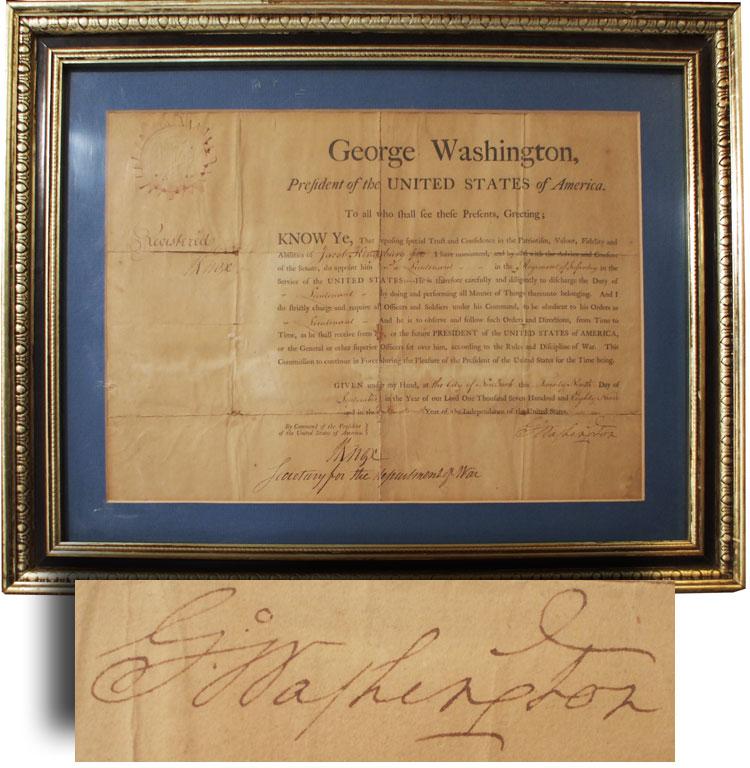 George Washington,
Preſident of the UNITED STATES of America.
To all who ſhall ſee theſe Preſents, Greeting;
Regiſtered
HKnox
KNOW Ye, That repoſing ſpecial Truſt and Confidence in the Patriotiſm, Valour, Fidelity and
Abilities of Jacob I have nominated, and by and with the Advice and Conſent
of the Senate, do appoint him a Lieutenant in the Regiment of Infantry in the
Service of the UNITED STATES: He is therefore carefully and diligently to diſcharge the Duty of
Lieutenant by doing and performing all Manner of Things thereunto belonging. And I
do ſtrictly charge and require all Officers and Soldiers under his Command, to be obedient to his Orders as
Lieutenant And he is to obſerve and follow ſuch Orders and Directions, from Time to
Time, as he ſhall receive from me, or the future PRESIDENT of the UNITED STATES of AMERICA,
or the General or other ſuperior Officers ſet over him, according to the Rules and Diſcipline of War. This
Commiſſion to continue in Force during the Pleaſure of the Preſident of the United States for the Time being.
GIVEN under my Hand, at the City of New York this Twenty Ninth Day of
September in the Year of our Lord One Thouſand Seven Hundred and Eighty Nine
and in the Year of the Independence of the United States.
By Command of the Preſident
of the United States of America
G:Waſhington
HKnox
Secretary for the department of War
G:Waſhington